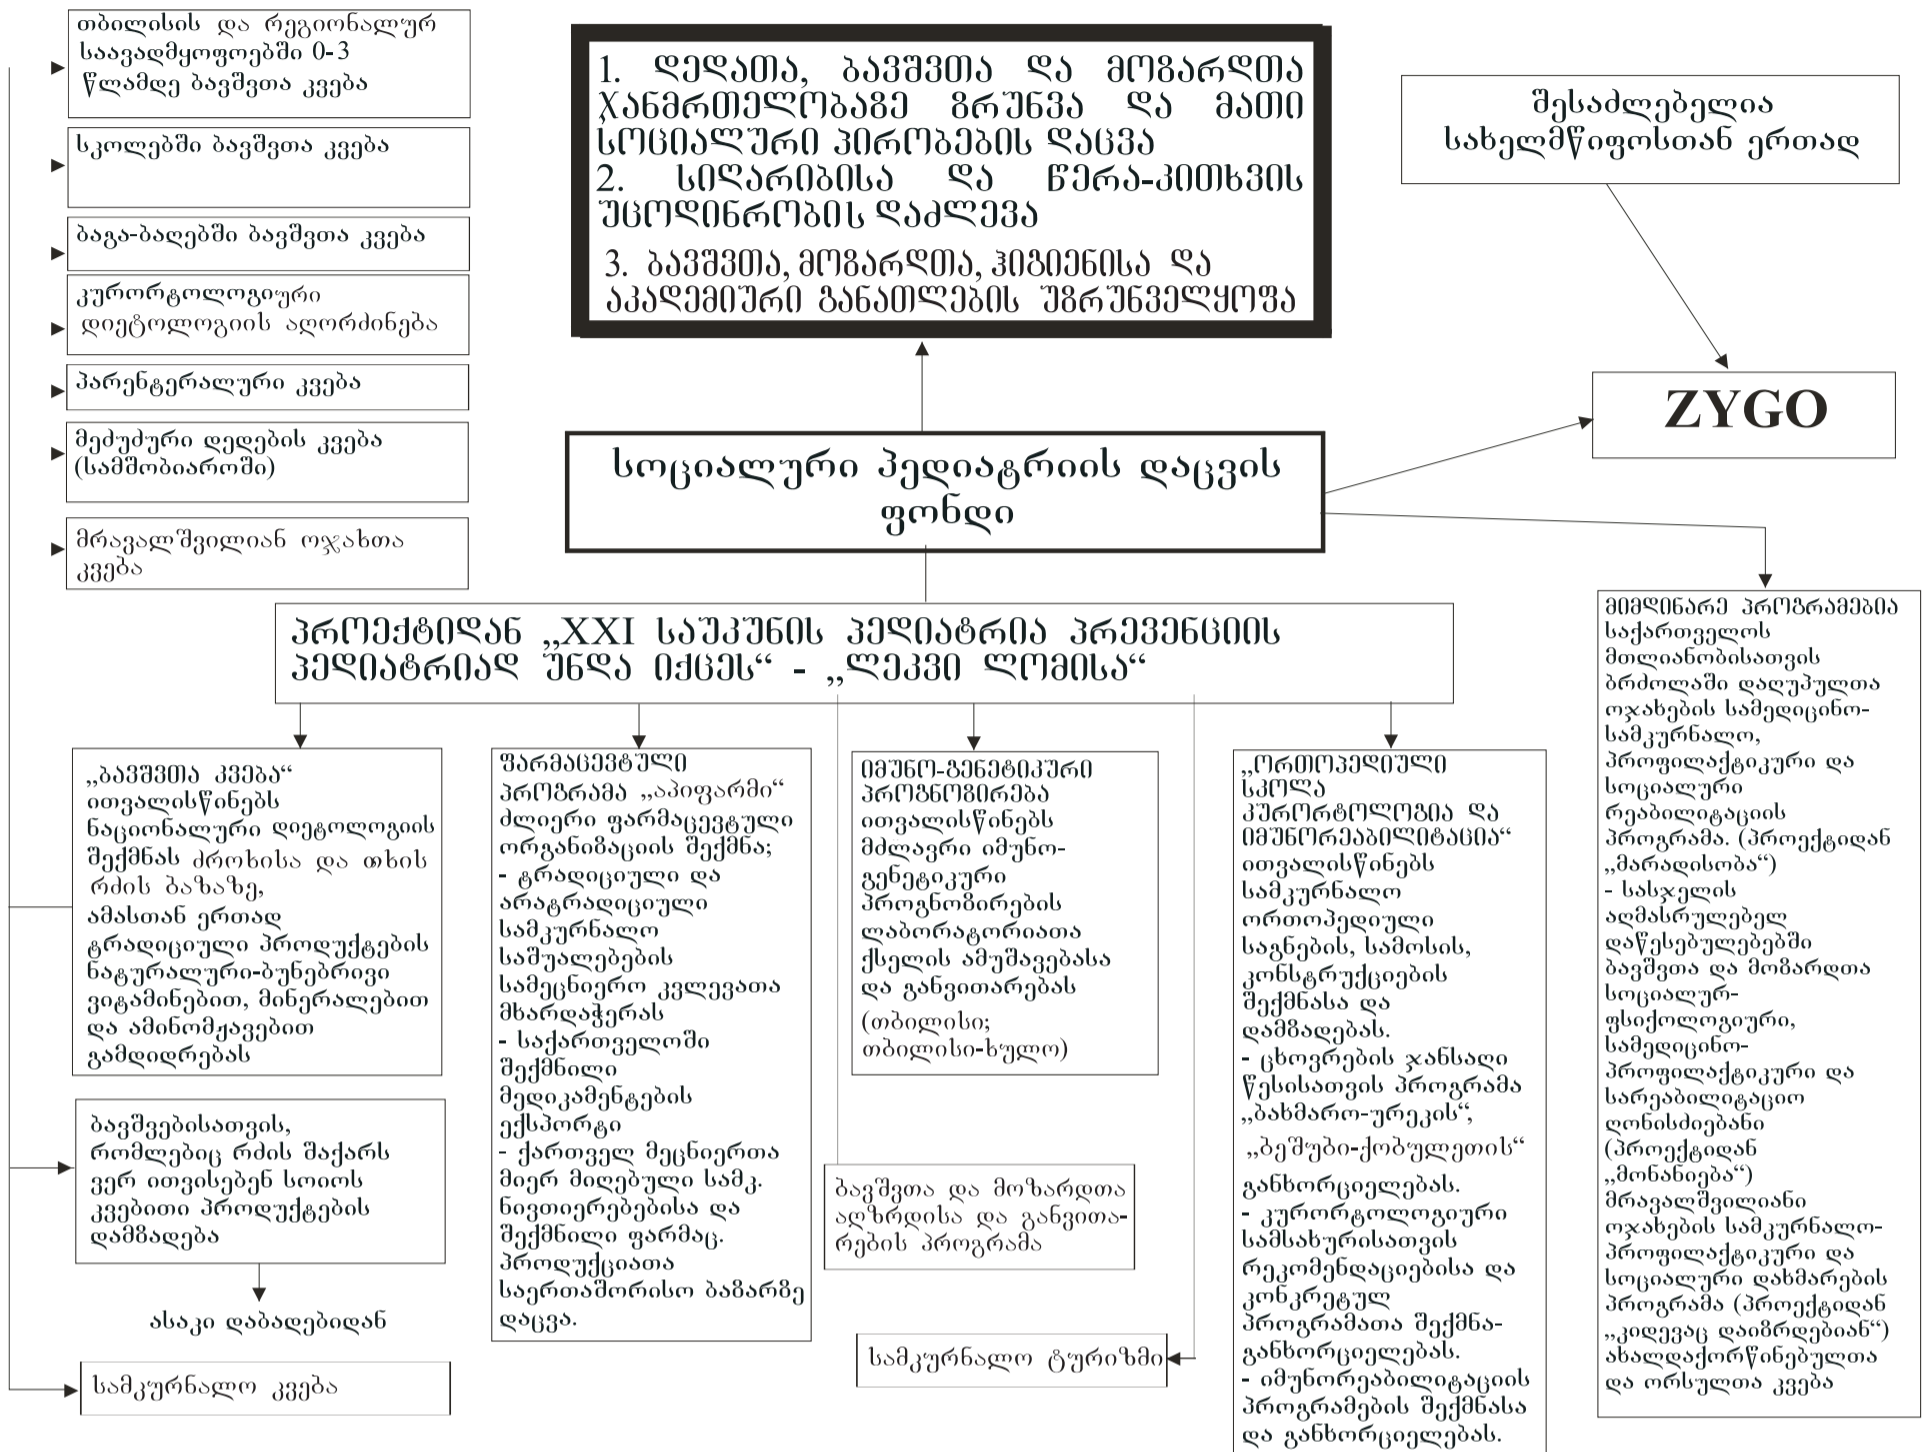 თბილისის და რეგიონალურ
საავადმყოფოებში 0-3
წლამდე ბავშვთა კვება
სკოლებში ბავშვთა კვება
ბაგა-ბაღებში ბავშვთა კვება
კურორტოლოგიური
დიეტოლოგიის აღორძინება
პარენტერალური კვება
მეძუძური დედების კვება
(სამშობიაროში)
მრავალშვილიან ოჯახთა
კვება
1. დედათა, ბავშვთა და მოზარდთა
ჯანმრთელობაზე ზრუნვა და მათი
სოციალური პირობების დაცვა
2. სიღარიბისა და წერა-კითხვის
უცოდინრობის დაძლევა
3. ბავშვთა, მოზარდთა, ჰიგიენისა და
აკადემიური განათლების უზრუნველყოფა
შესაძლებელია
სახელმწიფოსთან ერთად
ZYGO
სოციალური პედიატრიის დაცვის
ფონდი
პროექტიდან „XXI საუკუნის პედიატრია პრევენციის
პედიატრიად უნდა იქცეს“ - „ლეკვი ლომისა“
„ბავშვთა კვება“
ითვალისწინებს
ნაციონალური დიეტოლოგიის
შექმნას ძროხისა და თხის
რძის ბაზაზე,
ამასთან ერთად
ტრადიციული პროდუქტების
ნატურალური-ბუნებრივი
ვიტამინებით, მინერალებით
და ამინომჟავებით
გამდიდრებას
ბავშვებისათვის,
რომლებიც რძის შაქარს
ვერ ითვისებენ სოიოს
კვებითი პროდუქტების
დამზადება
ასაკი დაბადებიდან
სამკურნალო კვება
ფარმაცევტული
პროგრამა „აპიფარმი“
ძლიერი ფარმაცევტული
ორგანიზაციის შექმნა;
- ტრადიციული და
არატრადიციული
სამკურნალო
საშუალებების
სამეცნიერო კვლევათა
მხარდაჭერას
- საქართველოში
შექმნილი
მედიკამენტების
ექსპორტი
- ქართველ მეცნიერთა
მიერ მიღებული სამკ.
ნივთიერებებისა და
შექმნილი ფარმაც.
პროდუქციათა
საერთაშორისო ბაზარზე
დაცვა.
იმუნო-გენეტიკური
პროგნოზირება
ითვალისწინებს
მძლავრი იმუნო-
გენეტიკური
პროგნოზირების
ლაბორატორიათა
ქსელის ამუშავებასა
და განვითარებას
(თბილისი;
თბილისი-ხულო)
ბავშვთა და მოზარდთა
აღზრდისა და განვითა-
რების პროგრამა
სამკურნალო ტურიზმი
„ორთოპედიული
სკოლა
კურორტოლოგია და
იმუნორეაბილიტაცია“
ითვალისწინებს
სამკურნალო
ორთოპედიული
საგნების, სამოსის,
კონსტრუქციების
შექმნასა და
დამზადებას.
- ცხოვრების ჯანსაღი
წესისათვის პროგრამა
„ბახმარო-ურეკის“,
„ბეშუბი-ქობულეთის“
განხორციელებას.
- კურორტოლოგიური
სამსახურისათვის
რეკომენდაციებისა და
კონკრეტულ
პროგრამათა შექმნა-
განხორციელებას.
- იმუნორეაბილიტაციის
პროგრამების შექმნასა
და განხორციელებას.
მიმდინარე პროგრამებია
საქართველოს
მთლიანობისათვის
ბრძოლაში დაღუპულთა
ოჯახების სამედიცინო-
სამკურნალო,
პროფილაქტიკური და
სოციალური
რეაბილიტაციის
პროგრამა. (პროექტიდან
„მარადისობა“)
- სასჯელის
აღმასრულებელ
დაწესებულებებში
ბავშვთა და მოზარდთა
სოციალურ-
ფსიქოლოგიური,
სამედიცინო-
პროფილაქტიკური და
სარეაბილიტაციო
ღონისძიებანი
(პროექტიდან
„მონანიება“)
მრავალშვილიანი
ოჯახების სამკურნალო-
პროფილაქტიკური და
სოციალური დახმარების
პროგრამა (პროექტიდან
„კიდევაც დაიზრდებიან“)
ახალდაქორწინებულთა
და ორსულთა კვება